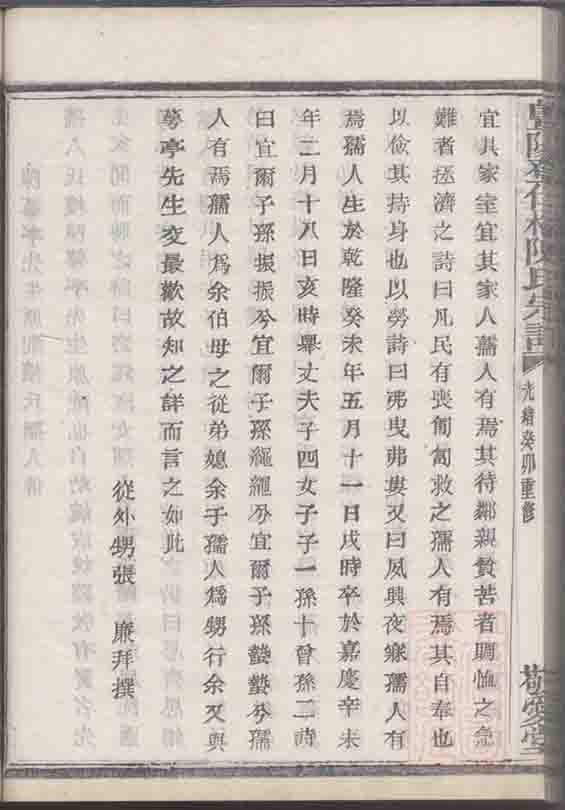 宜其家室宜其家人孺人有焉其待鄰親貧苦者賙恤之急
難者拯濟之詩曰凡民有喪匍匐救之孺人有焉其自奉也
以儉其持身也以勞詩曰弗曳弗婁又曰夙興夜寐孺人有
焉孺人生於乾隆癸未年五月十一日戌時卒於嘉慶辛未
年二月十八日亥時舉丈夫子四女子子一孫十曾孫二詩
曰宜爾子孫振振兮宜爾子孫繩繩兮宜爾子孫蟄蟄兮孺
人有焉孺人爲余伯母之從弟媳余于孺人爲甥行余又與
亭先生交最歡故知之詳而言之如此
從外甥張 廉拜撰
光緒癸卯重修
敬愛堂